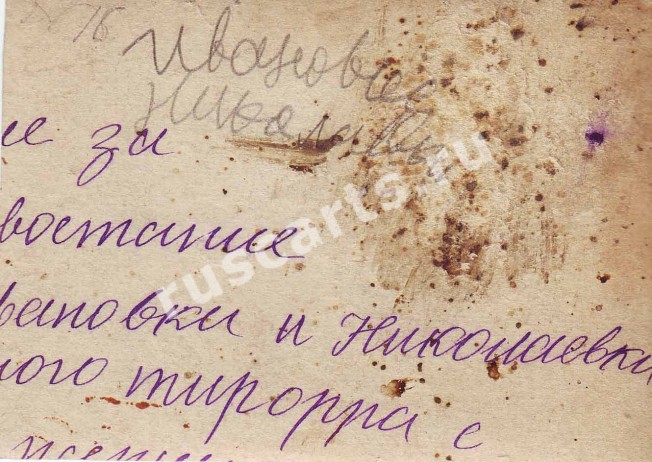 № 16
Ивановка
Николаевка
ие за
востание
вановки и Николаевки
ного тирорра с
ruscarts.ru